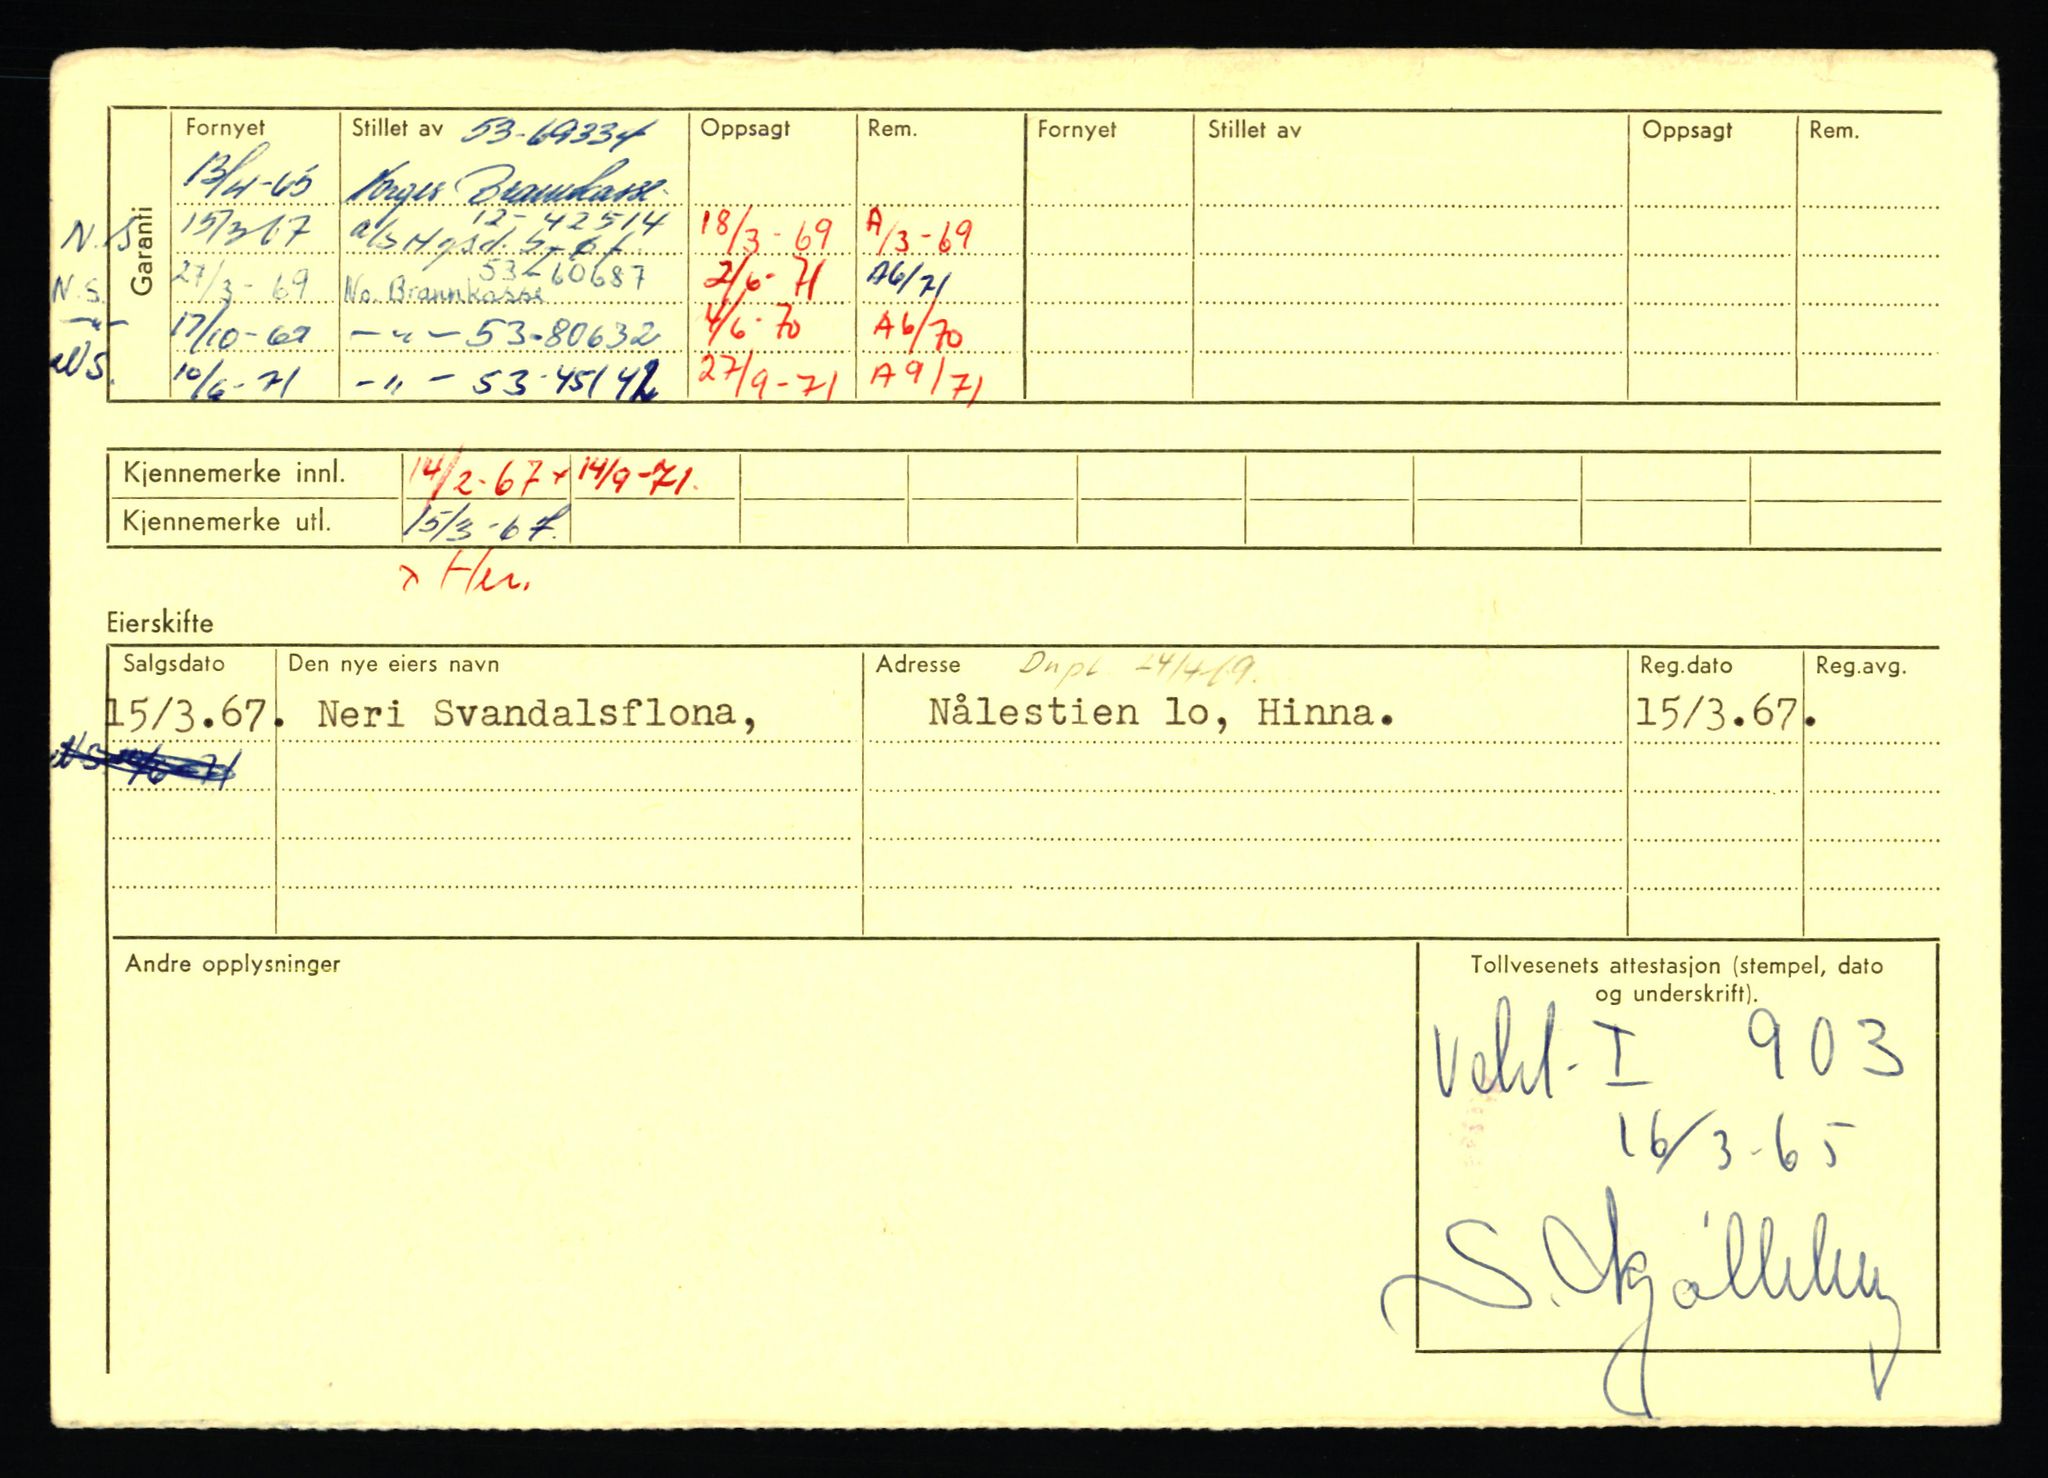 Garanti
Fornyet Stillet av 53-69334 Oppsagt Rem. Fornyet Stillet av Oppsagt Rem.
13/4-65 Norges Brannkasse
12-42514
N.S 15/3 67 a/s 18/3-69 A/3-69
53-60687
N.S. 27/3-69 No. Brannkasse 2/6-71 A6/71
-"- 17/10-69 -"- 53-80632 4/6-70 A6/70
NS. 10/6-71 -"- 53-45142 27/9-71 A9/71
Kjennemerke innl. 14/2-67 x 14/9-71.
Kjennemerke utl. 15/3-67.
x Her.
Eierskifte
Salgsdato Den nye eiers navn Adresse Dupl. 24/4-69. Reg.dato Reg.avg.
15/3.67. Neri Svandalsflona, Nålestien lo, Hinna. 15/3.67.
NS 10/6-71
Andre opplysninger
Tollvesenets attestasjon (stempel, dato
og underskrift).
Vekl-I 903
16/3-65